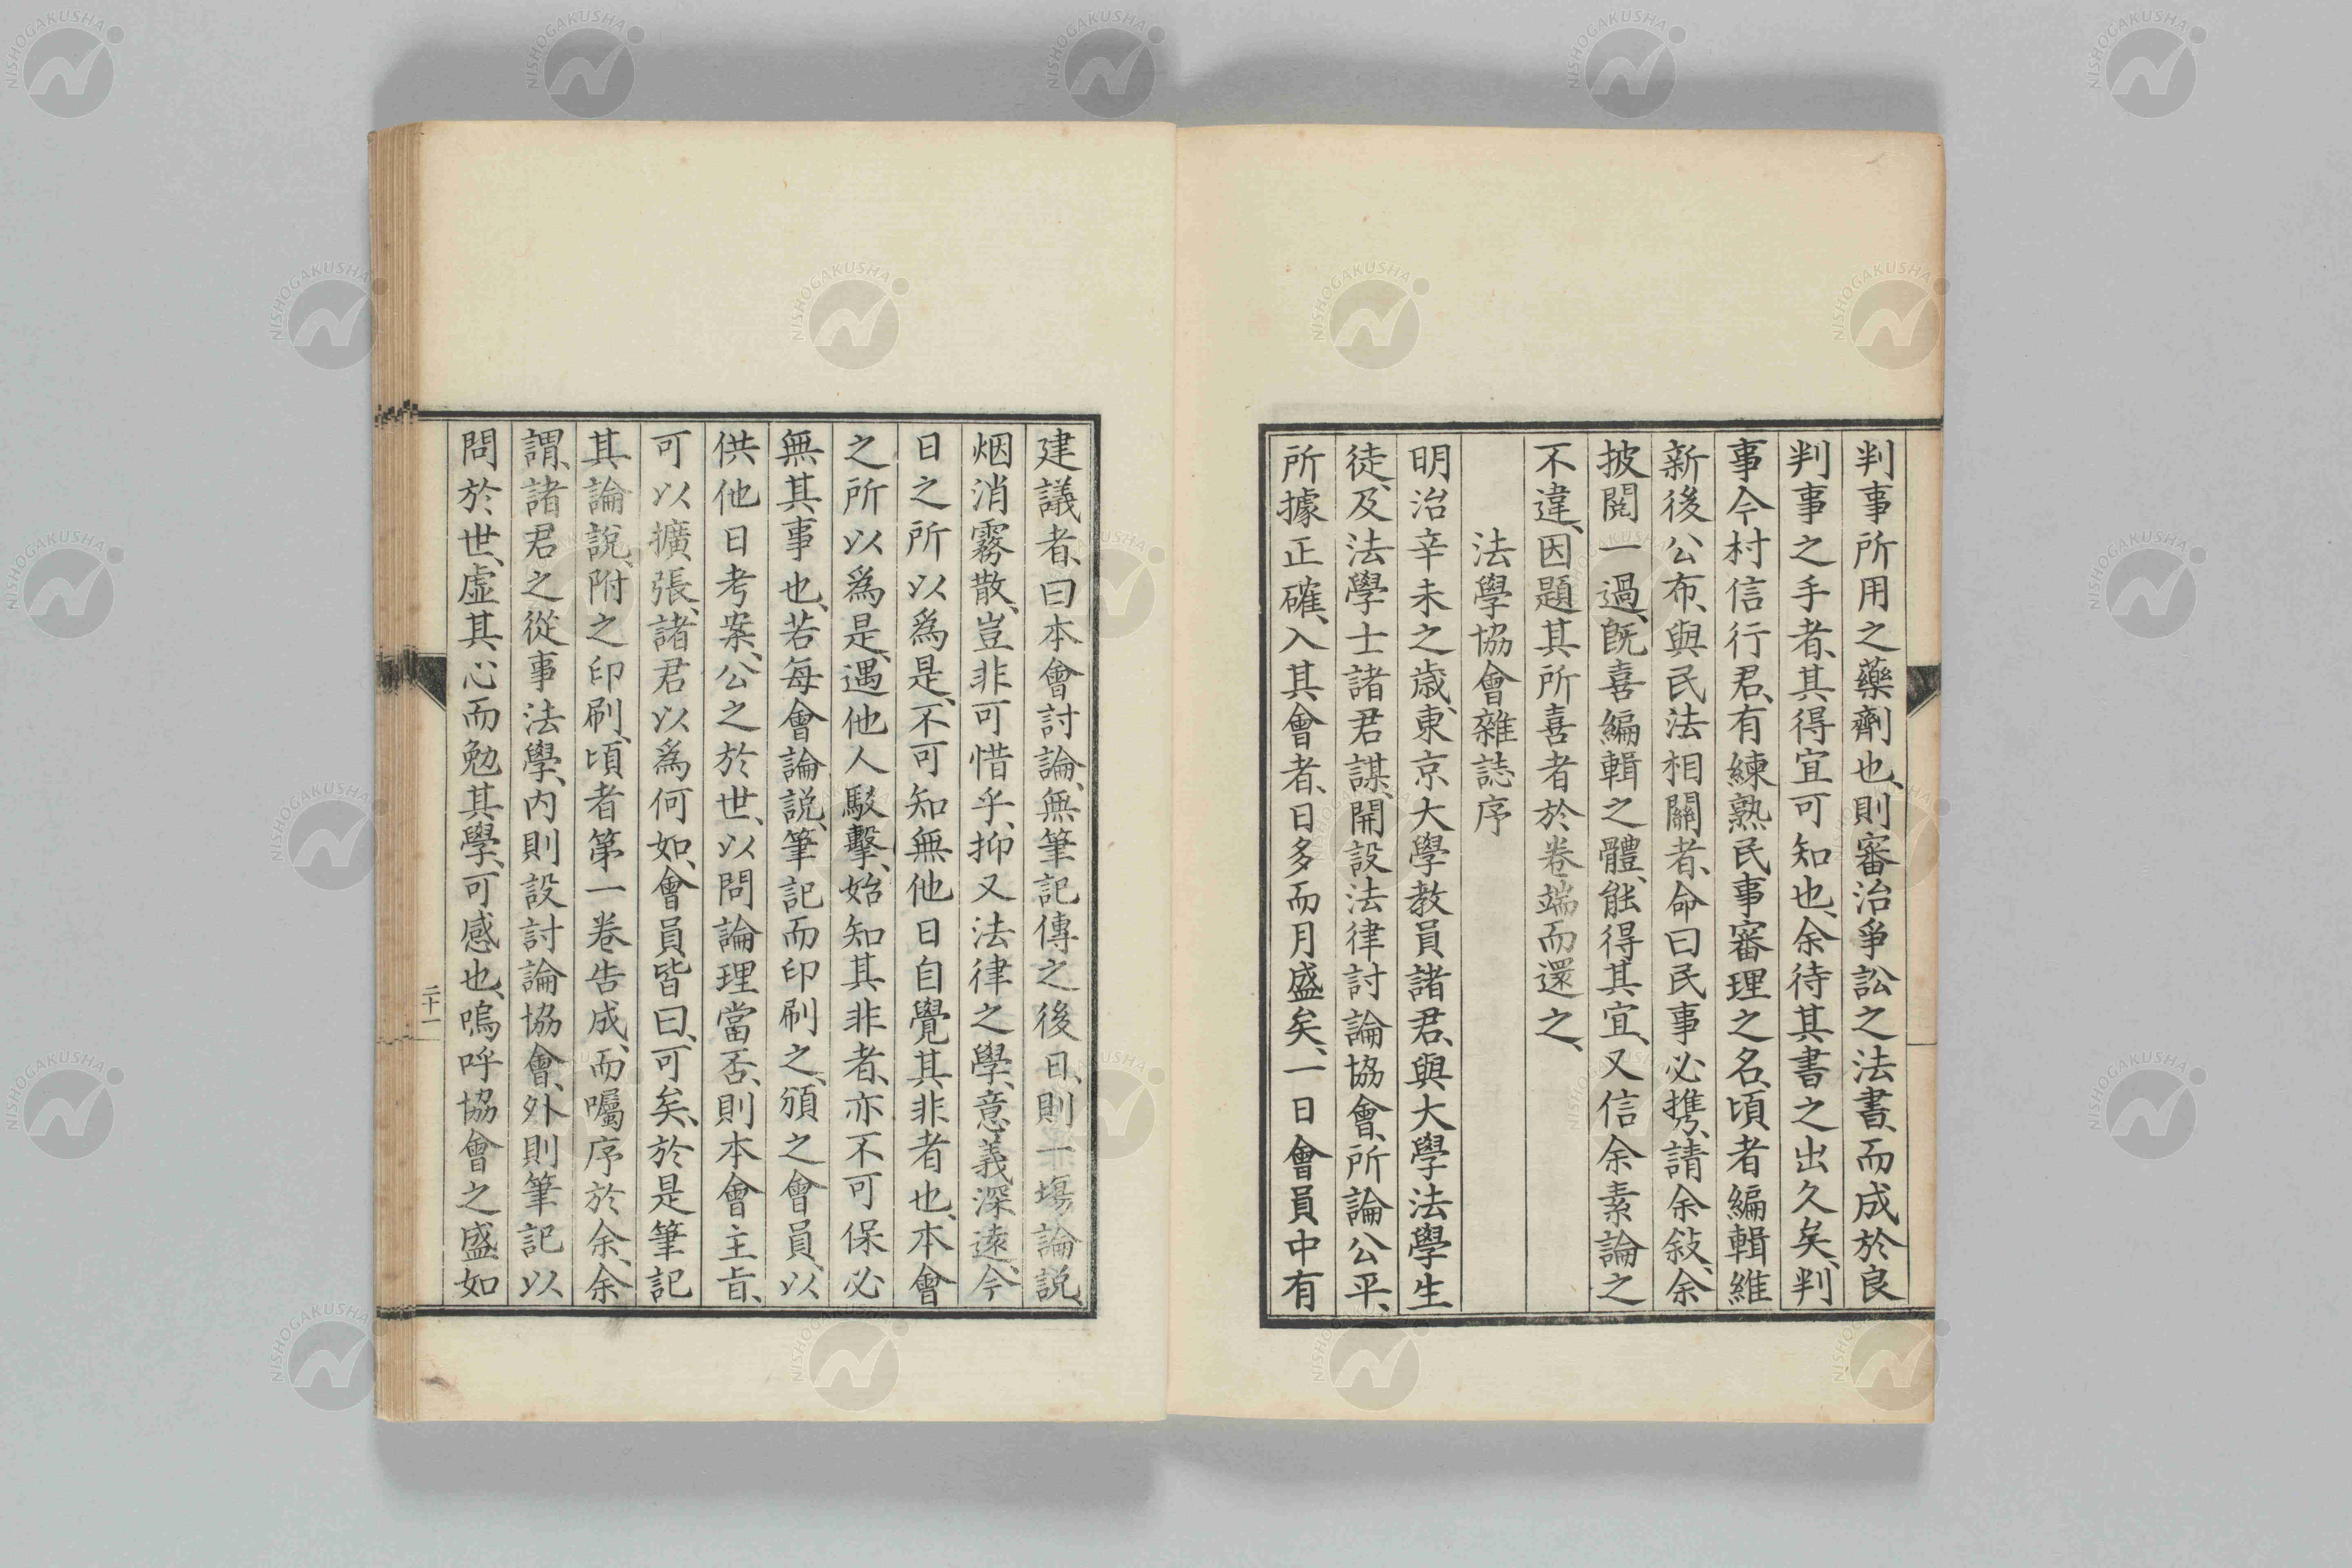 判事所用之藥劑也、則審治爭訟之法書、而成於良
判事之手者、其得宜可知也、余待其書之出久矣、判
事今村信行君、有練熟民事審理之名、頃者編輯維
新後公布、與民法相關者、命曰民事必携、請余敍、余
披閱一過、既喜編輯之體、能得其宜、又信余素論之
不違、因題其所喜者於卷端而還之、
法學協會雜誌序
明治辛未之歲、東京大學教員諸君、與大學法學生
徒、及法學士諸君謀、開設法律討論協會、所論公平、
所據正確、入其會者、日多而月盛矣、一日會員中有
建議者、曰本會討論、無筆記傳之後日、則一塲論説、
烟消霧散、豈非可惜乎、抑又法律之學、意義深遠、今
日之所以爲是、不可知無他日自覺其非者也、本會
之所以爲是、遇他人駁擊、始知其非者、亦不可保必
無其事也、若每會論説、筆記而印刷之、頒之會員、以
供他日考案、公之於世、以問論理當否、則本會主旨、
可以擴張、諸君以爲何如、會員皆曰、可矣、於是筆記
其論説、附之印刷、頃者第一卷告成、而囑序於余、余
謂、諸君之從事法學、内則設討論協會、外則筆記以
問於世、虛其心而勉其學、可感也、嗚呼協會之盛如
二十一
NISHOGAKUSHA